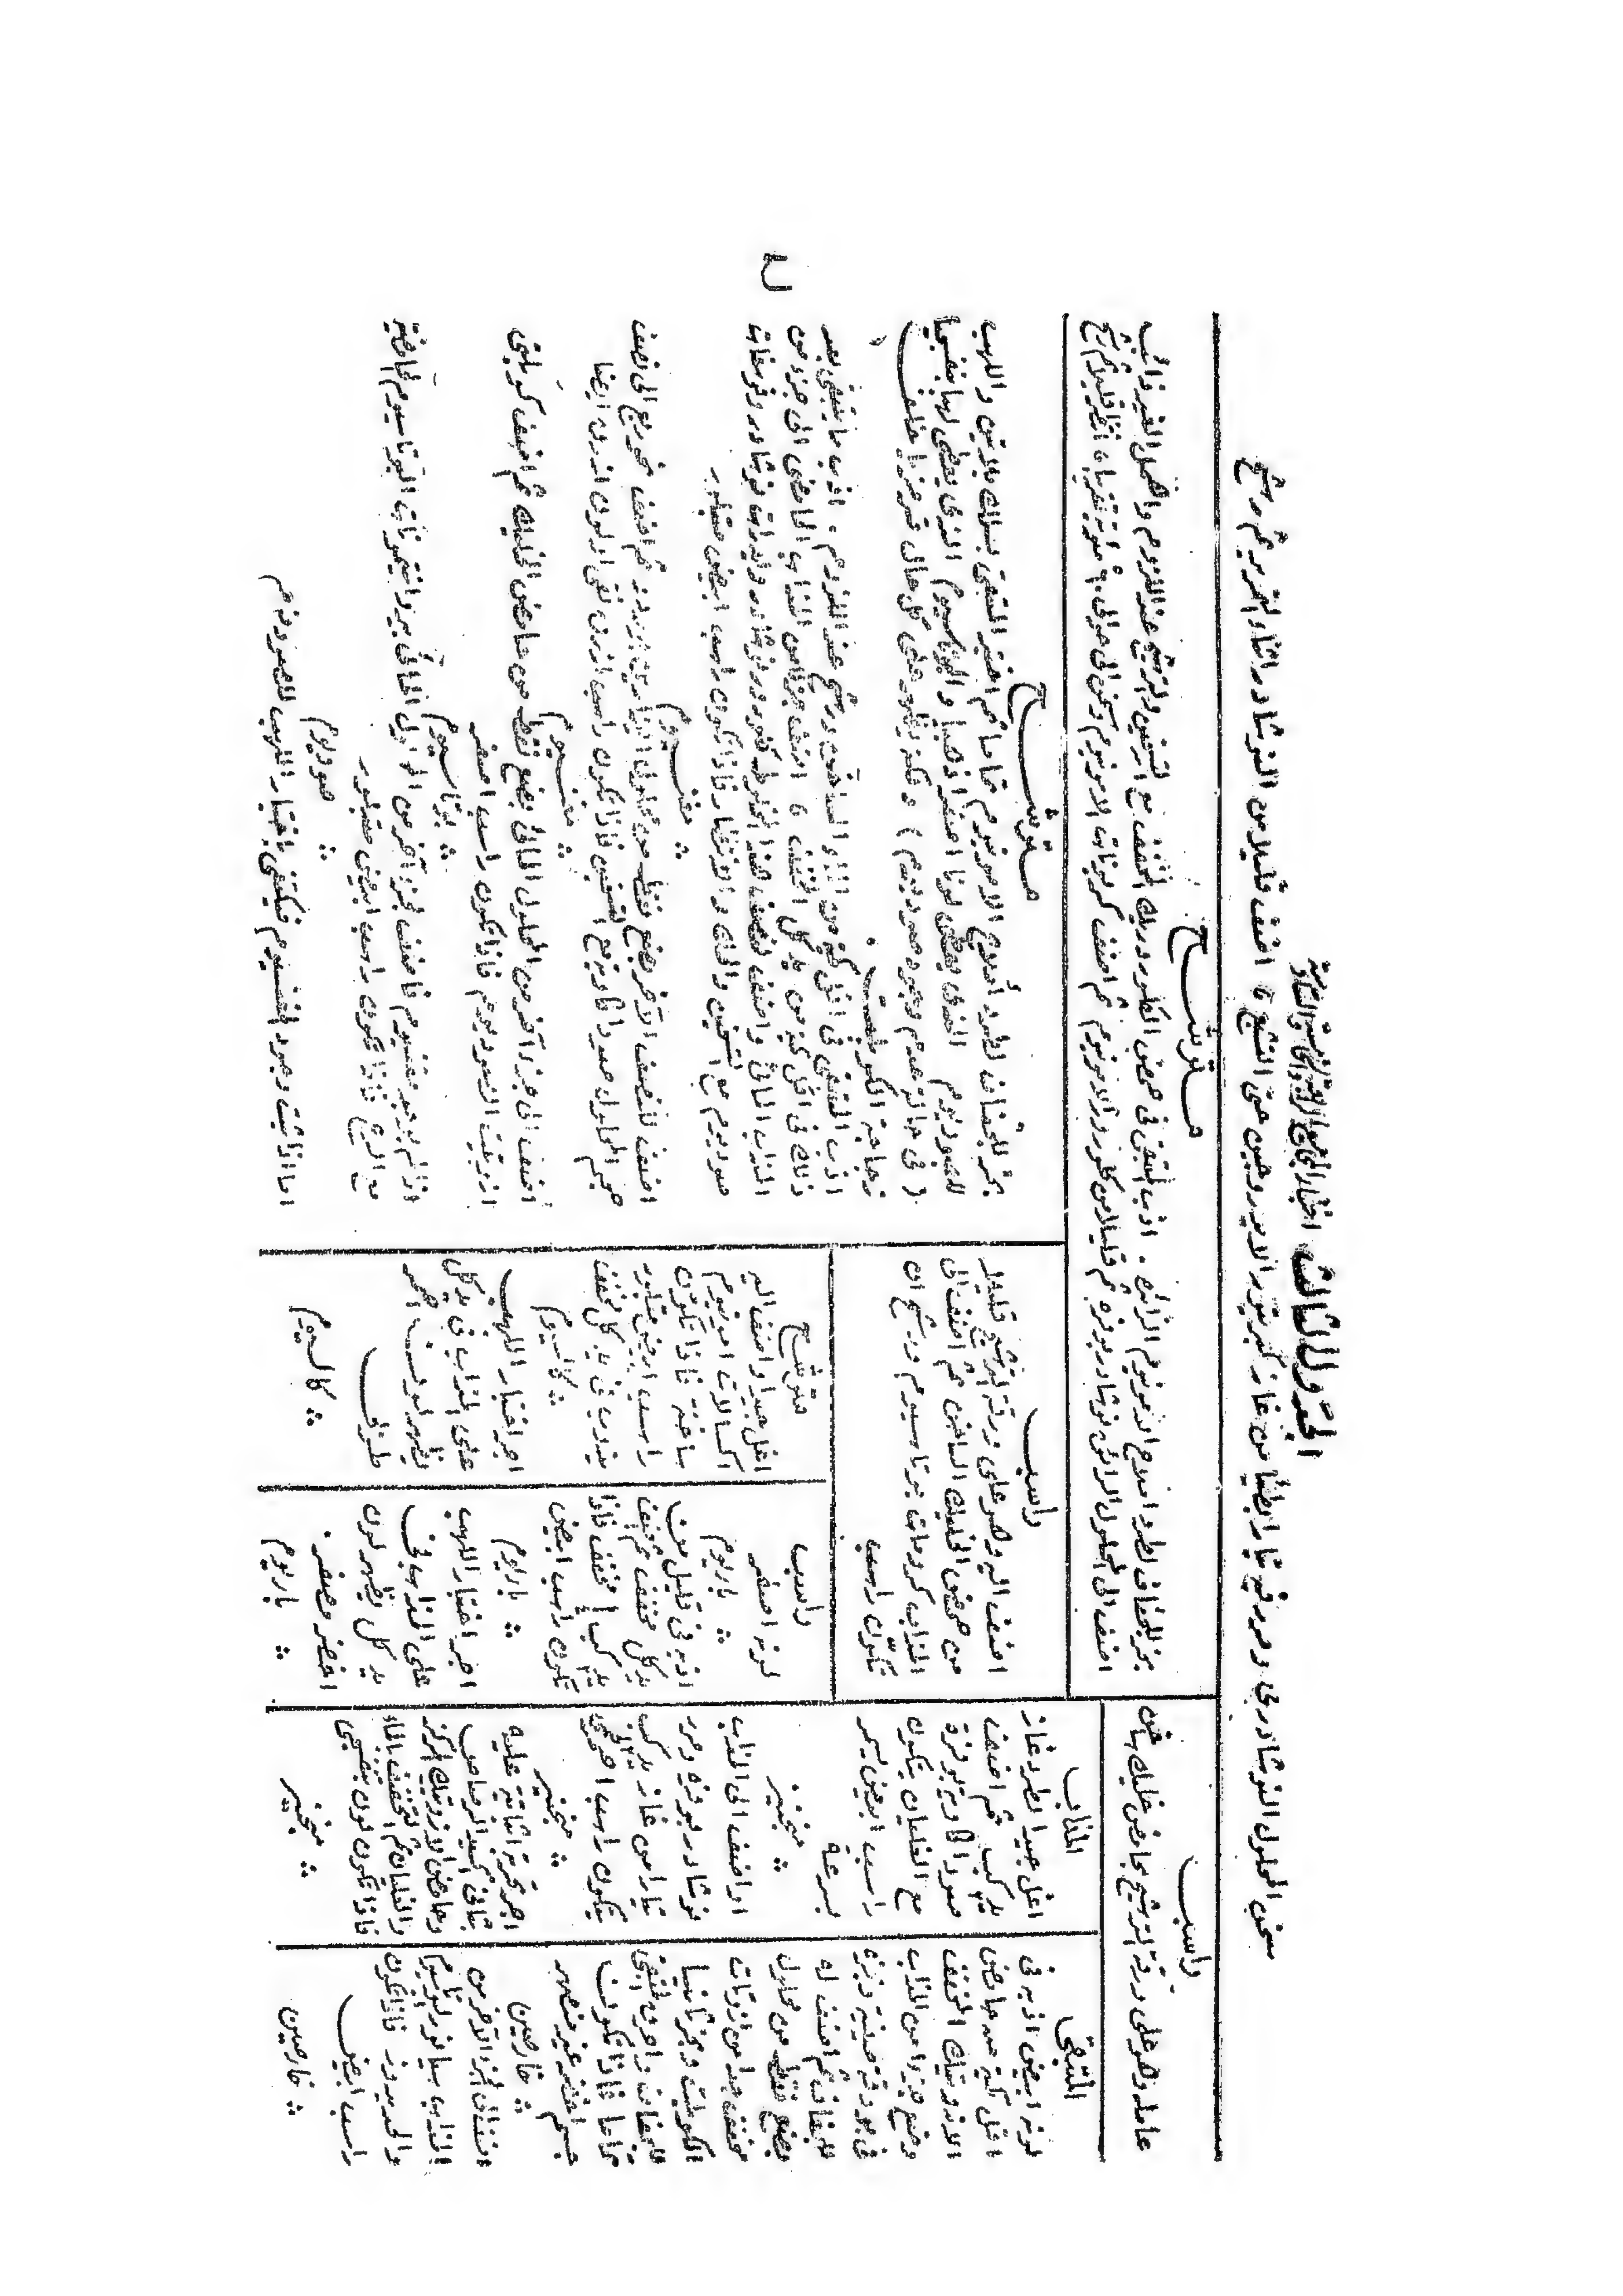 الجدول الثالث
سخن المحلول النوشادري ومرر فيه تيارا بطيئا من غاز كبريتور الايدروجين حتى التشبع ، اضف قليلا من النوشادر اثناء التمرير ثم رشح
راسب
عامله وهو على ورقة الترشيح بحامض خليك ساخن
المتبقى
لونه ابيض اذبه فى
اقل كمية من حامض
الازوتيك المخفف
وضع جزءا من المذاب
فى بودقة صينية وبخره
للجفاف ثم اضف له
بضع نقط من محلول
مخفف جدا من ازوتات
الكوبلت وبخر ثانيا
للجفاف واحرق المتبقى
تماما فاذا تكونت
جسم اخضر غير منصهر
∴ خارصين
اضف الى الجزء الآخر من
المذاب سيانور البوتاسيوم
والحديدوز فاذا تكون
راسب ابيض
∴ خارصين
المذاب
اغل جيدا لطرد غاز
يد٢ كب ثم اضف
صودا كاوية بوفرة
مع الغليان يتكون
راسب ابيض يسمر
بسرعة
∴ منجنيز
او اضف الى المذاب
نوشادر بوفرة ومرر
تيارا من غاز يد٢ كب
يتكون راسب لحمى
∴ منجنيز
اجر تجربة اثباتية عليه
بثانى اكسيد الرصاص
وحامض الازوتيك المركز
والغليان ثم التخفيف بالماء
فاذا تكون لون بنفسجى
∴ منجنيز
مترشح
بخر للجفاف لطرد املاح الامونيوم الزائدة . اذب المتبقى فى حمض الكلوردريك المخفف مع التسخين والترشيح عند اللزوم واهمل الغير ذائب
اضف الى المحلول الرائق نوشادر بوفرة ثم قليلا من كلورور الامونيوم ثم اضف كربونات الامونيوم وسخن الى حوالى ٦٠ مئوية تقريبا انتظر قليلا ثم رشح
راسب
اضف اليه وهو على ورقة الترشيح قليلا
من حمض الخليك الساخن ثم اضف الى
المذاب كرومات بوتاسيوم ورشح ان
تكون راسب
راسب
لونه اصفر
∴ باريوم
اذبه فى قليل من
يد كل مخفف ثم اضف
يد٢ كب أ٤ مخفف فاذا
تكون راسب ابيض
∴ باريوم
اجر اختبار اللهب
على المذاب فى
يد كل يظهر لون
اخضر مصفر .
∴ باريوم
مترشح
اغل جيدا واضف اليه
اكسالات امونيوم
ساخنة فاذا تكون
راسب ابيض متبلور
يذوب فى يد كل مخفف
∴ كالسيوم
اجر اختبار اللهب
على المذاب فى يد كل
يظهر لون احمر
طوبى
∴ كالسيوم
مترشح
بخر للجفاف لطرد أملاح الامونيوم تماما ثم اختبر المتبقى بسلك بلاتين واللهب
للصوديوم الذى يعطى لونا اصفر ذهبيا والبوتاسيوم الذى يعطى لهبا بنفسجيا
( فى حالة عدم وجود صوديوم ) ولكنه يظهر على كل حال قرمزيا خلف
زجاجة الكوبلت .
اذب المتبقى فى اقل كمية من الماء الساخن ورشح عند اللزوم . اذب ما يتبقى بعد
ذلك فى اقل كمية من يد كل المخفف ، اضف جزءا من المذاب الحامضى الى جزء من
المذاب المائى واضف لنصف هذا المخلوط كلورور نوشادر وايدرات نوشادر وفوسفات
صوديوم مع التسخين والحك والانتظار فاذا تكون راسب ابيض متبلور
∴ مغنسيوم
اضف للنصف الآخر بضع نقط من محلول اليود فى يودور ثم اضف نحو ربع الى نصف
حجم المحلول صودا كاوية مع التسخين فاذا تكون راسب ازرق نقى او لون ازرق ايضا
∴ مغنسيوم
أضف الى جزء آخر من المحلول المائى بضع نقط من حامض الخليك ثم اضف كوبلتى
ازوتيت الصوديوم فاذا تكون راسب اصفر
∴ بوتاسيوم
اذا لم يوجد مغنسيوم فاضف لجزء آخر من المذاب المائى بيروانتيمونات البوتاسيوم الحامضية
مع الرج فاذا تكون راسب ابيض متبلور
∴ صوديوم
اما اذا ثبت وجود المغنسيوم فيكتفى باختبار اللهب للصوديوم
ح